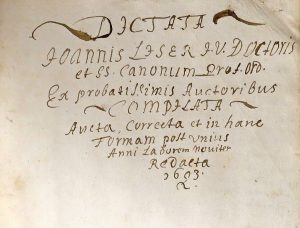 DICTATA
IOANNIS LESER I.V. DOCTORIS
et SS. Canonum Prof. ORD.
Ex probatissimis Auctoribus
COMPILATA
Aucta, Correcta et in hanc
Formam post unius
Anni Laborem noviter
Redacta
1693